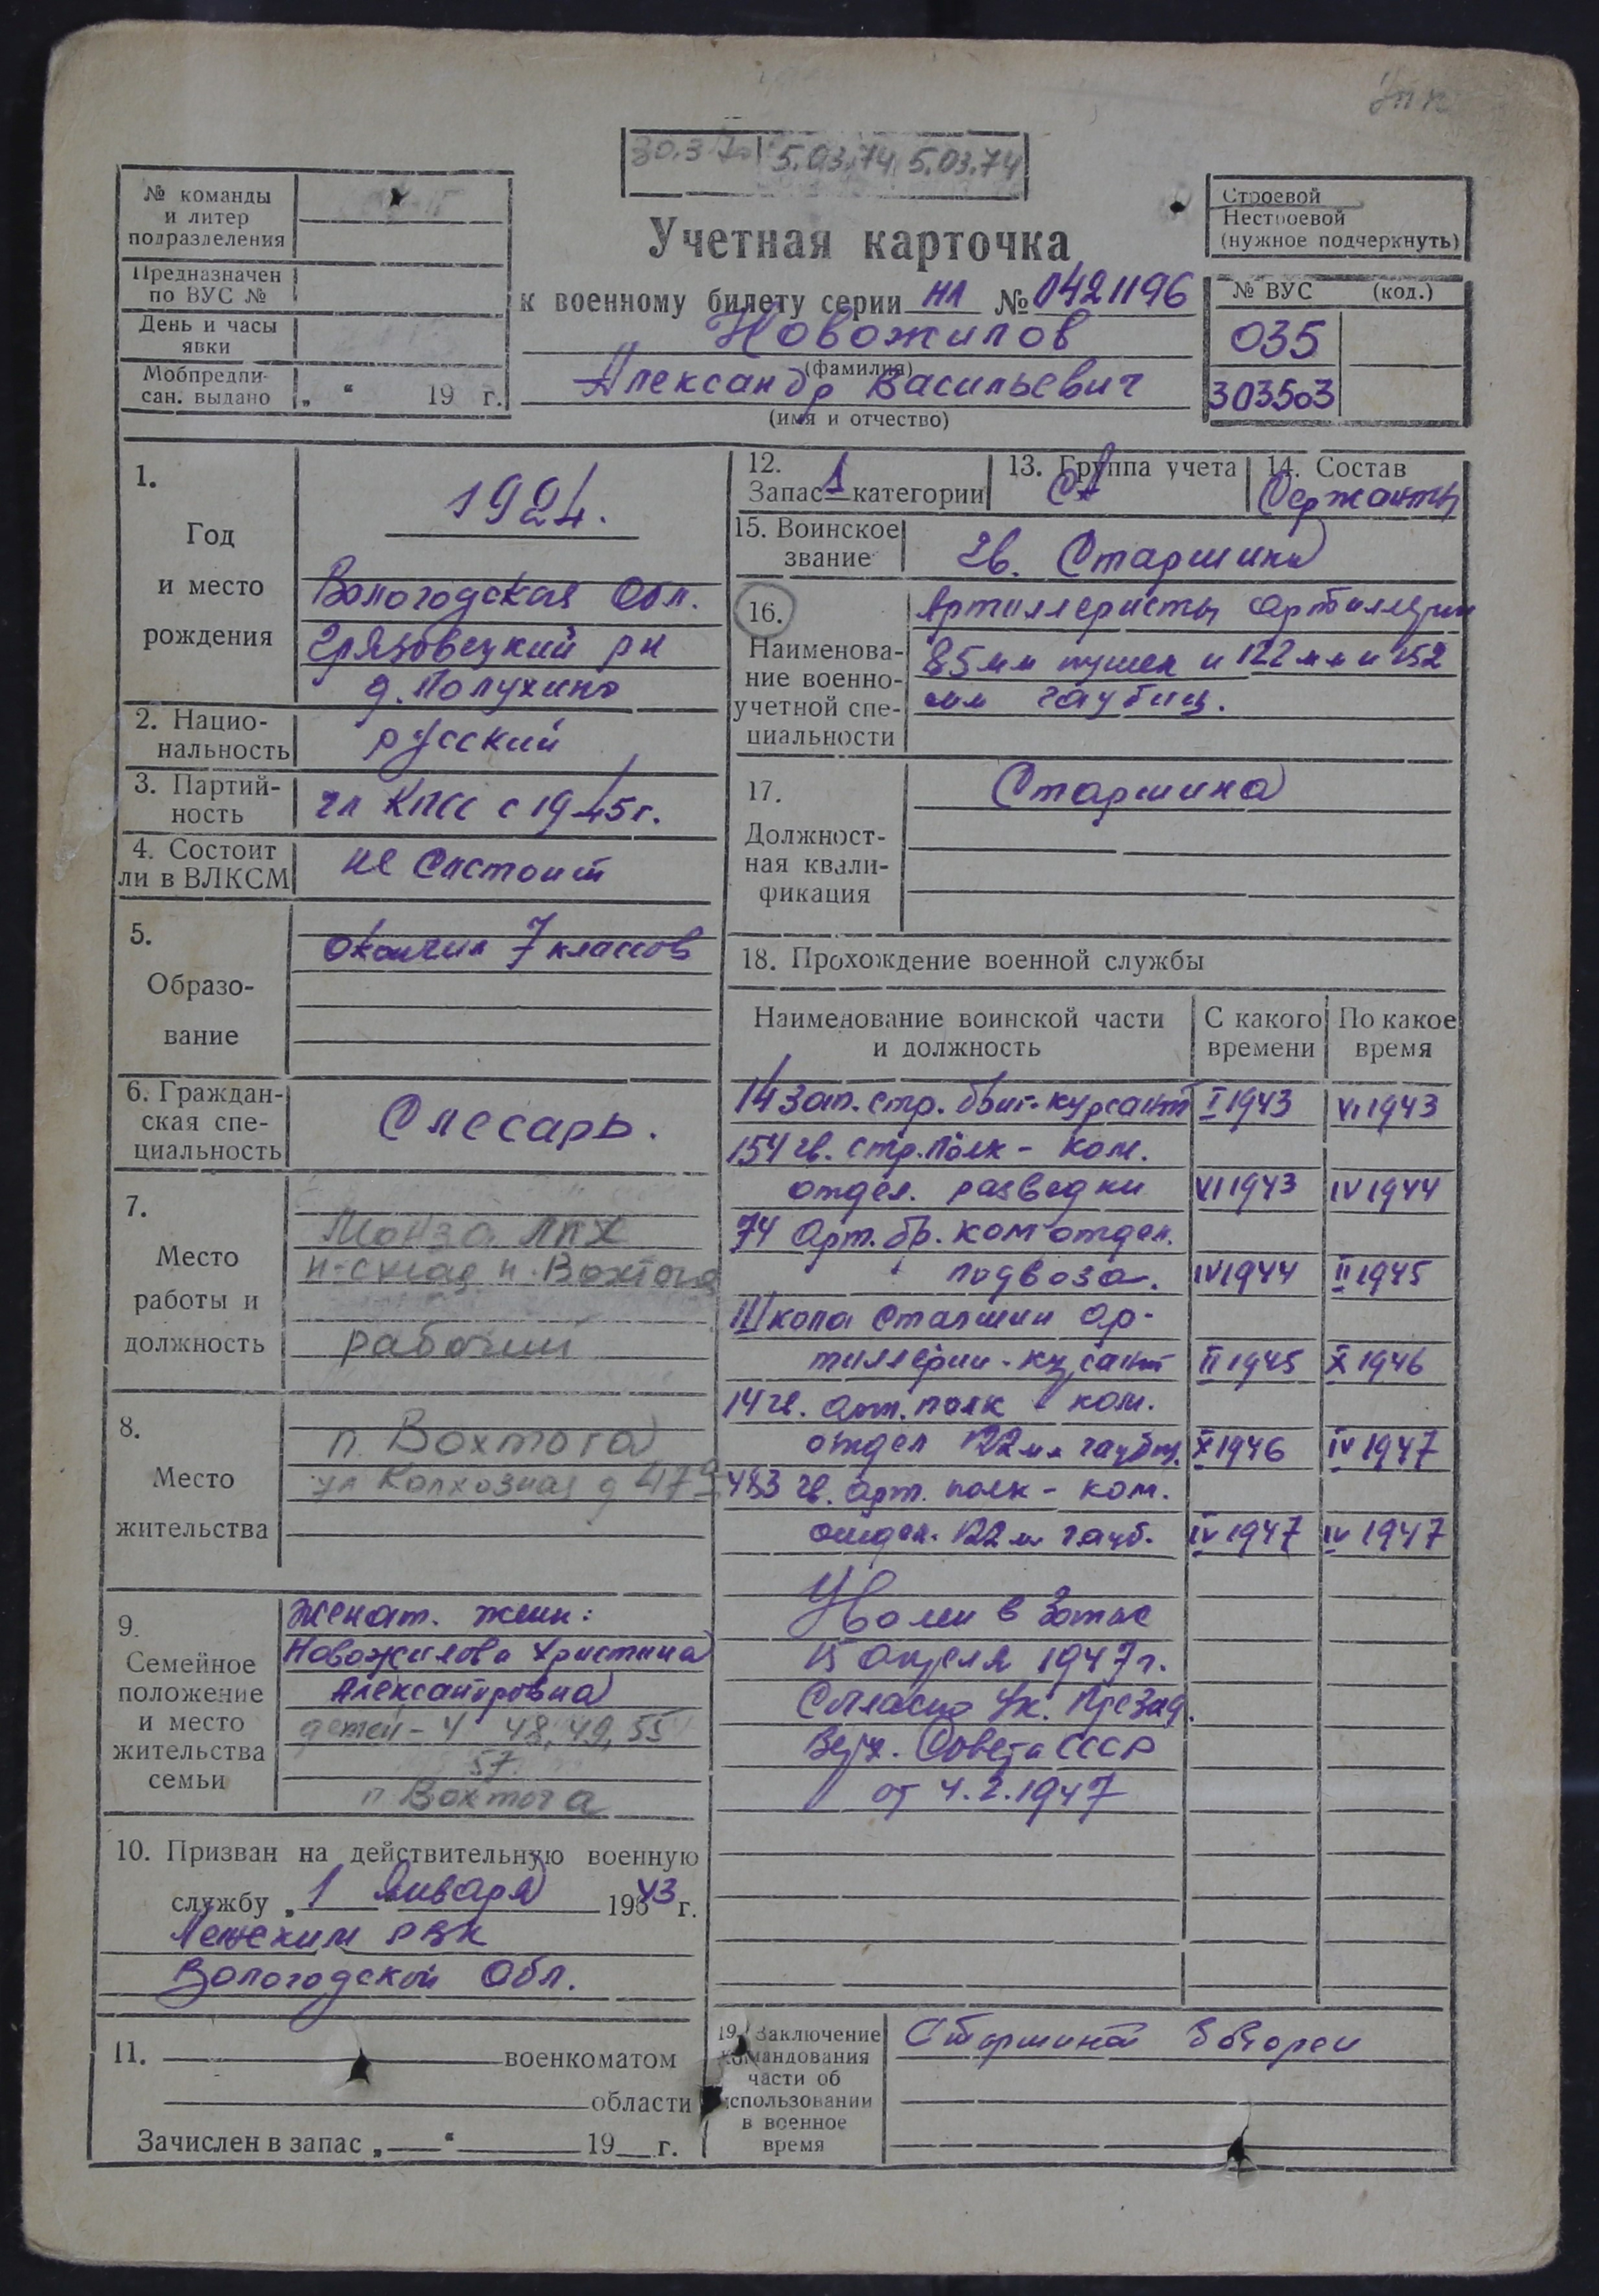 30.3.70 5.03.74 5.03.74
№ команды
и литер
подразделения
Предназначен
по ВУС №
День и часы
явки
Мобпредпи-
сан. выдано „ “ 19 г.
Учетная карточка
к военному билету серии НЛ № 0421196
Новожилов
(фамилия)
Александр Васильевич
(имя и отчество)
Строевой
Нестроевой
(нужное подчеркнуть)
№ ВУС (код.)
035
303503
1.
Год
и место
рождения
1924.
Вологодская Обл.
Грязовецкий рн
д. Полухино
2. Нацио-
нальность
русский
3. Партий-
ность
чл КПСС с 1945г.
4. Состоит
ли в ВЛКСМ
не состоит
5.
Образо-
вание
окончил 7 классов
6. Граждан-
ская спе-
циальность
Слесарь.
7.
Место
работы и
должность
Монза ЛПХ
н-склад п. Вохтога
рабочий
8.
Место
жительства
п. Вохтога
ул Колхозная д 47а
9.
Семейное
положение
и место
жительства
семьи
Женат. жена:
Новожилова Христина
Александровна
детей - 4 48, 49, 55
57.
п Вохтога
10. Призван на действительную военную
службу „ 1 Января 1943 г.
Лежским РВК
Вологодской Обл.
11. военкоматом
области
Зачислен в запас „ “ 19 г.
12.
Запас 1 категории
13. Группа учета
СА
14. Состав
Сержанты
15. Воинское
звание
Гв. Старшина
16.
Наименова-
ние военно-
учетной спе-
циальности
Артиллеристы артиллерии
85мм пушек и 122 мм и 152
мм гаубиц.
17.
Должност-
ная квали-
фикация
Старшина
18. Прохождение военной службы
Наименование воинской части
и должность
С какого
времени
По какое
время
14 зап. стр. бриг. курсант I 1943 VI 1943
154 гв. стр. полк - ком.
отдел. разведки VI 1943 IV 1944
74 Арт. бр. ком отдел.
подвоза. IV 1944 II 1945
Школа старшин ар-
тиллерии - курсант II 1945 X 1946
14 гв. арт. полк ком.
отдел 122 мм гаубиц. X 1946 IV 1947
483 гв. арт. полк - ком.
отдел. 122 мм гауб. IV 1947 IV 1947
Уволен в запас
15 Апреля 1947г.
Согласно Ук. Презид.
Верх. Совета СССР
от 4.2.1947
19. Заключение
командования
части об
использовании
в военное
время
Старшина батареи